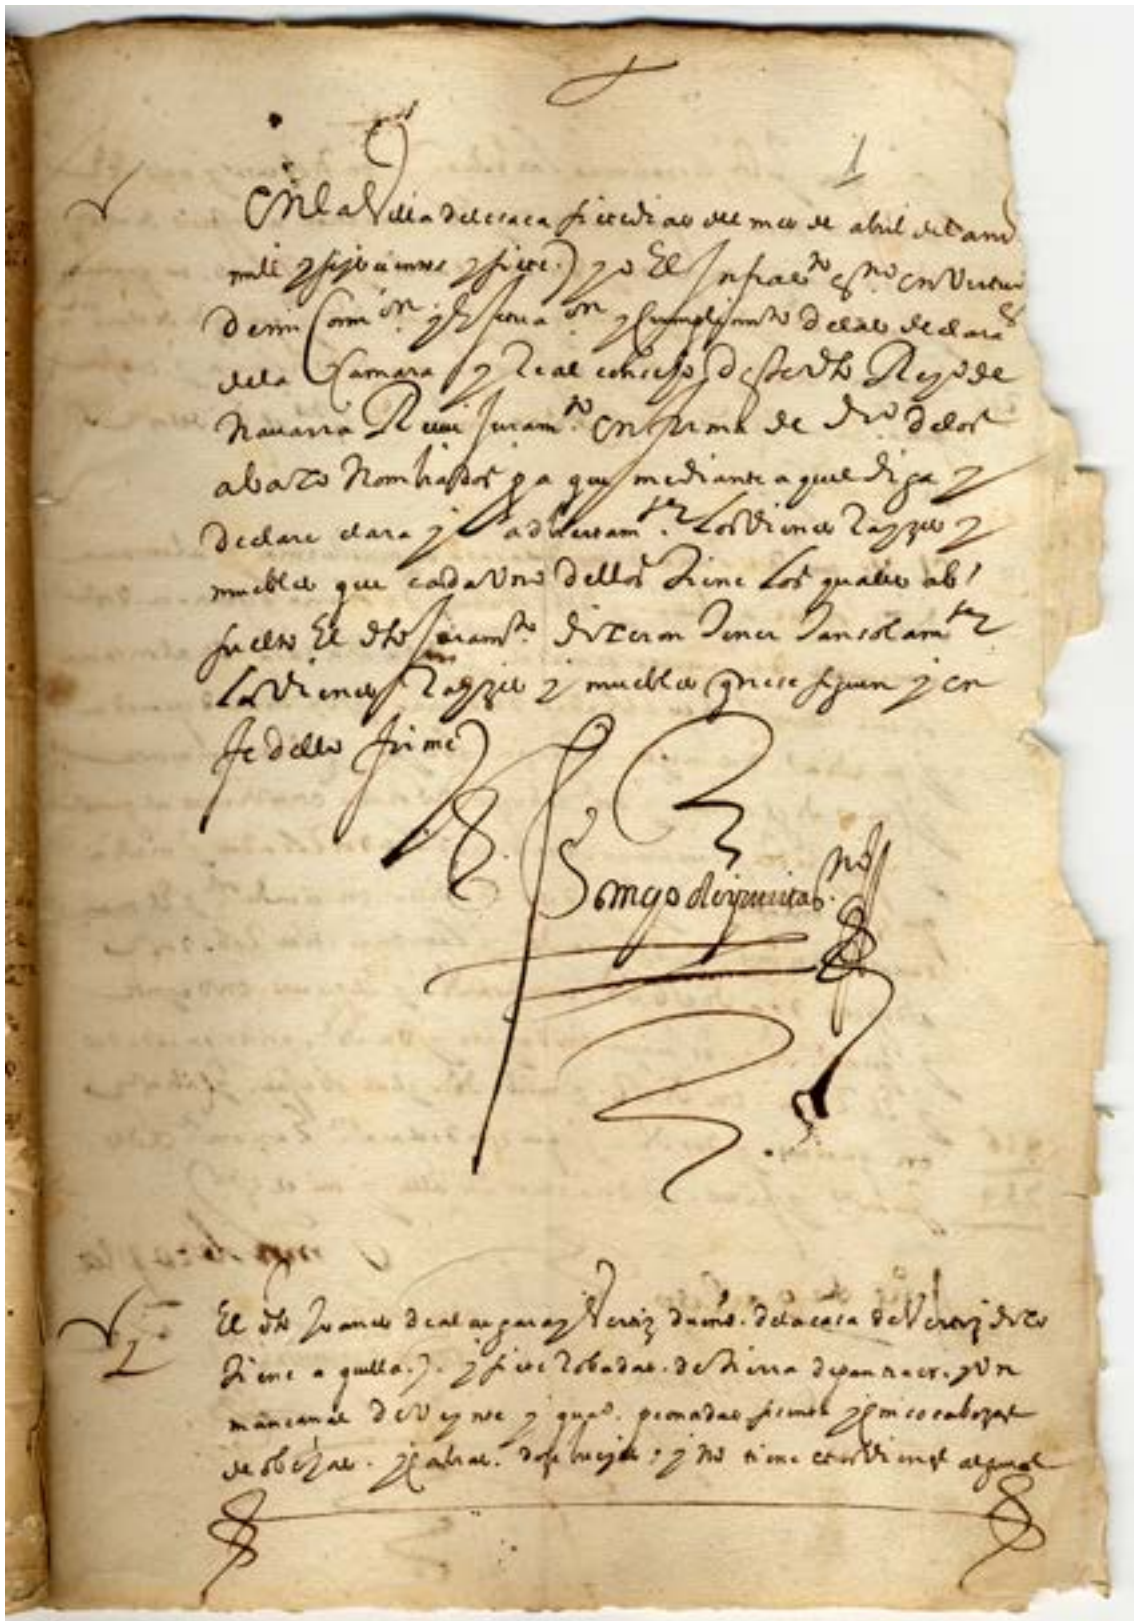 1
En la Villa de lesaca siete dias del mes de abril del ano
mill y seyscientos y siete yo El Infraes^to es^no en Virtud
de mi Comi^on y Instrua^on y Cumplimi^to de las declara^es
de la Camara y Real consejo deste dho Reyo de
Navarra Recivi juram^to En forma de dro de los
abaxo Nombrados pa que mediante aquel diga y
declare clara y adbertam^te Los Vienes Rayzes y
muebles que cada Uno dellos tiene Los quales ab
suelto El dho juram^to dixeron tener tan solam^te
Los Vienes Rayzes y muebles q̃ ne se siguen y en
fe dello firme
Domgo de s^no
El dho Juanes de y Verriz dueño de la casa de Verriz dixo
tiene aquella y siete Robadas de tierra de pan traer y Un
mançanal de Veynte y quoº peonadas y cinco cabezas
de obejas y cabras dos bueyes y no tiene otros Vienes algunos